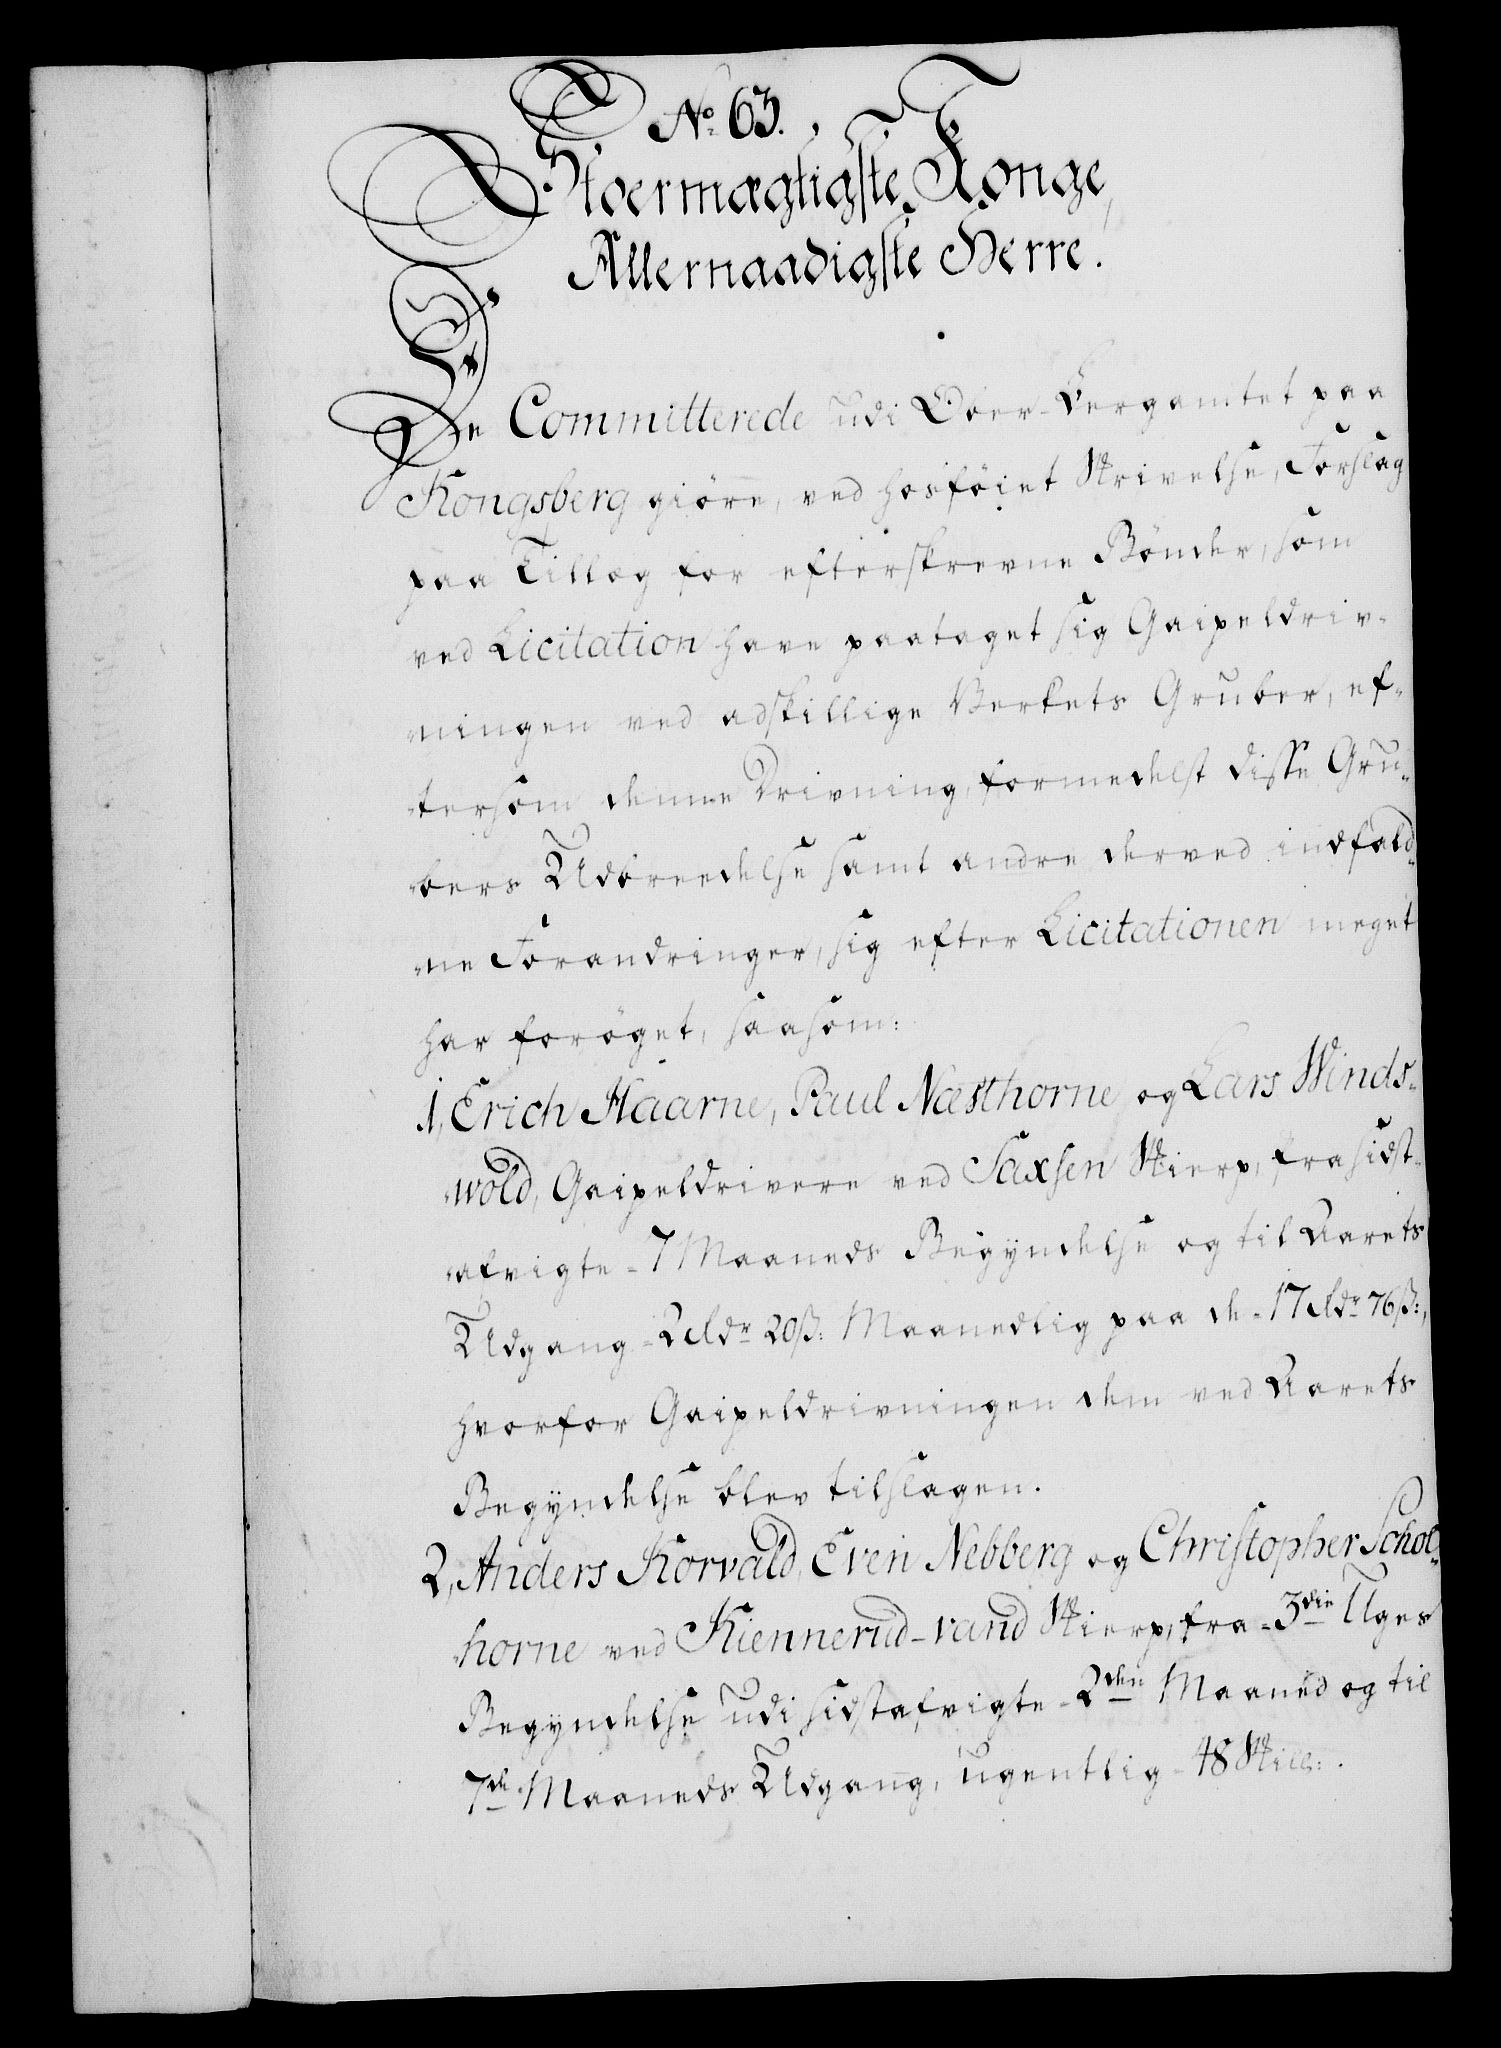 No. 63.
Stormægtigste Konge,
Allernaadigste Herre.
De Committerede udi Over-Bergamtet paa
Kongsberg giöre, ved hosföiet Skrivelse, Forslag
paa Tillæg for efterskrevne Bönder, som
ved Licitation have paataget sig Gaipeldriv-
ningen ved adskillige Verkets Gruber, ef-
tersom denne Drivning, formedelst disse Gru-
bers Udbredelse samt andre derved indfald-
ne Forandringer, sig efter Licitationen meget
har foröget, saasom:
1, Erich Haarne, Paul Næsthorne og Lars Winds-
wold, Gaipeldrivere ved Saxsen Skierp, fra sidst-
afvigte - 7 Maaneds Begyndelse og til Aarets
Udgang - 2 Rdr 20 ß: Maanedlig paa de - 17 Rdr 76 ß:,
hvorfor Gaipeldrivningen dem ved Aarets
Begyndelse blev tilslagen.
2, Anders Korvald, Even Nebberg og Christopher Schol-
horne ved Kiennerud-vand Skierp, fra - 3die Uges
Begyndelse udi sidstafvigte - 2den Maaned og til
7de Maaneds Udgang, ugentlig - 48 Skill:.